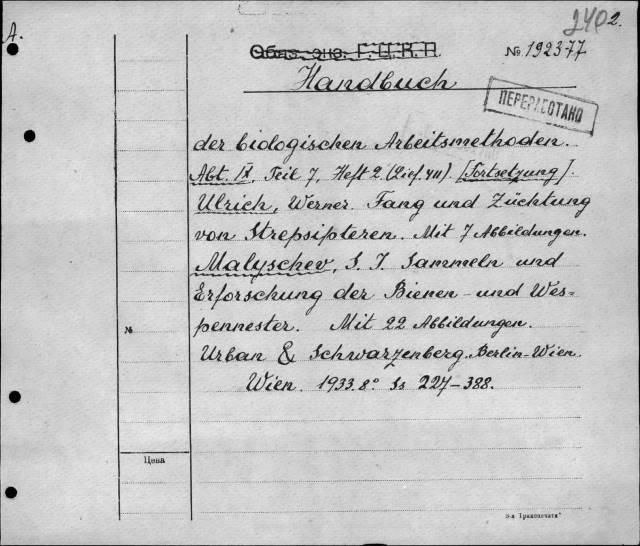 A.
2402.
Обяз. экз. Г.Ц.К.П.
№ 192377
Handbuch
ПЕРЕРАБОТАНО
der biologischen Arbeitsmethoden.
Abt. IX, Teil 7, Heft 2. (Lief. 411). [Fortsetzung].
Ulrich, Werner. Fang und Züchtung
von Strepsipteren. Mit 7 Abbildungen.
Malyschev, S. I. Sammeln und
Erforschung der Bienen- und Wes=
pennester. Mit 22 Abbildungen.
№
Urban & Schwarzenberg. Berlin-Wien.
Wien. 1933. 8° Ss 227-388.
Цена
3-я Транспечати"